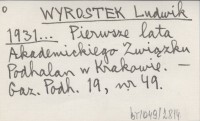 WYROSTEK Ludwik
1931... Pierwsze lata
Akademickiego Związku
Podhalan w Krakowie. –
Gaz. Podh. 19, nr 49.